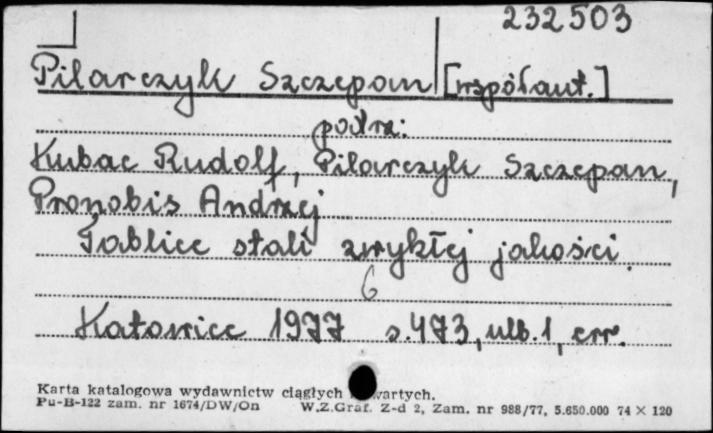 232503
Pilarczyk Szczepan [współaut.]
podrz:
Kubac Rudolf, Pilarczyk Szczepan,
Pronobis Andrzej
Tablice stali zwykłej jakości.
6
Katowice 1977 s. 473, ulb. 1, err.
Karta katalogowa wydawnictw ciągłych wartych.
Pu-B-122 zam. nr 1674/DW/On W.Z.Graf. Z-d 2, Zam. nr 988/77, 5.650.000 74 × 120